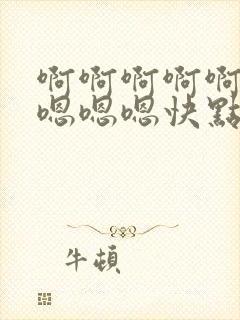 啊啊啊啊啊
嗯嗯嗯快點
牛頓